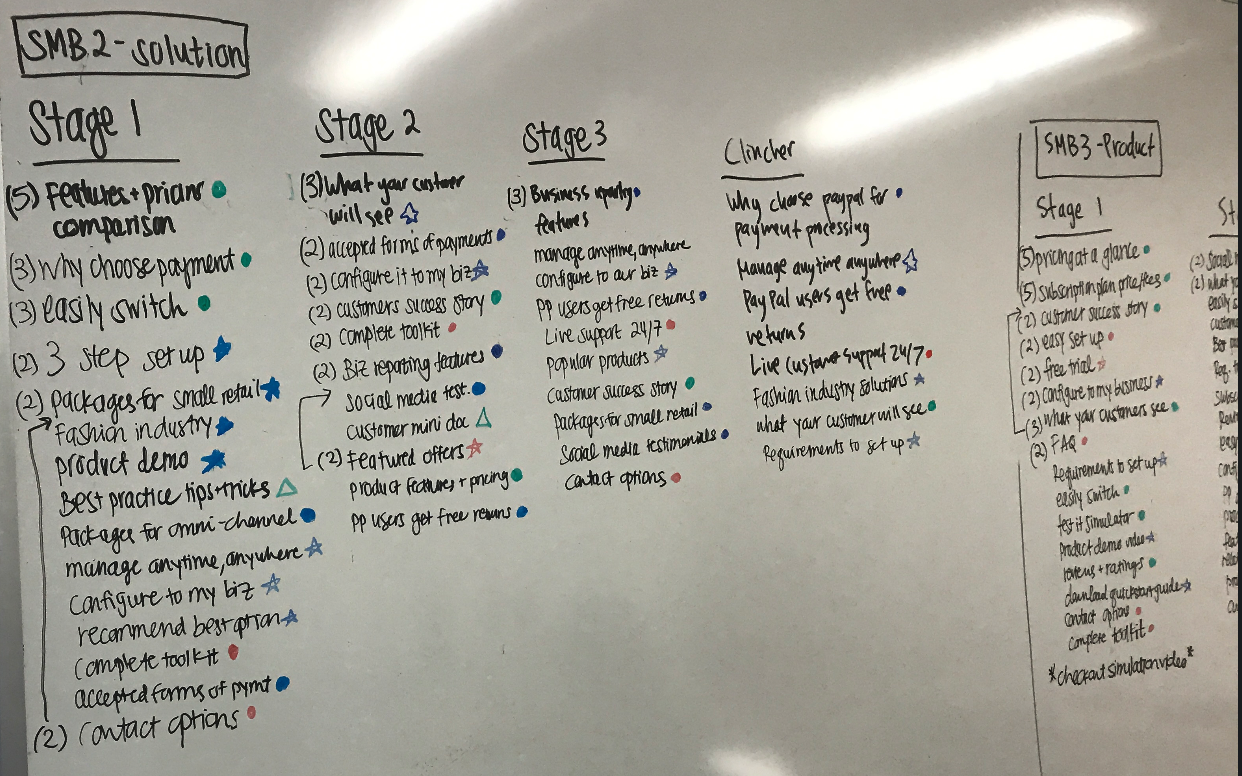 SMB.2-solution
Stage 1
(5) Features + pricing
comparison
(3) Why choose payment
(3) easily switch
(2) 3 step set up
(2) packages for small retail
Fashion industry
product demo
Best practice tips+tricks
Packages for omni-channel
manage anytime, anywhere
Configure to my biz
recommend best option
Complete toolkit
accepted forms of pymt
(2) Contact options
Stage 2
(3) What your customer
will see
(2) accepted forms of payments
(2) configure it to my biz
(2) customers success story
(2) Complete toolkit
(2) Biz reporting features
social media test.
Customer mini doc
(2) Featured offers
product features + pricing
pp users get free returns
Stage 3
(3) Business reporting
features
manage anytime, anywhere
configure to our biz
PP users get free returns
Live support 24/7
Popular products
Customer success story
Packages for small retail
Social media testimonials
Contact options
Clincher
Why choose paypal for
payment processing
Manage anytime anywhere
PayPal users get free
returns
Live customer support 24/7
Fashion industry solutions
what your customer will see
Requirements to set up
SMB3-Product
Stage 1
(5) pricing at a glance
(5) subscription plan price/fees
(2) customer success story
(2) easy set up
(2) free trial
(2) configure to my business
(3) What your customers see
(2) FAQ
Requirements to set up
easily switch
test it simulator
Product demo video
reviews + ratings
download quickstart guide
contact options
Complete toolkit
*checkout simulation video*
St
(2) Social
(2) what yo
easily
custome